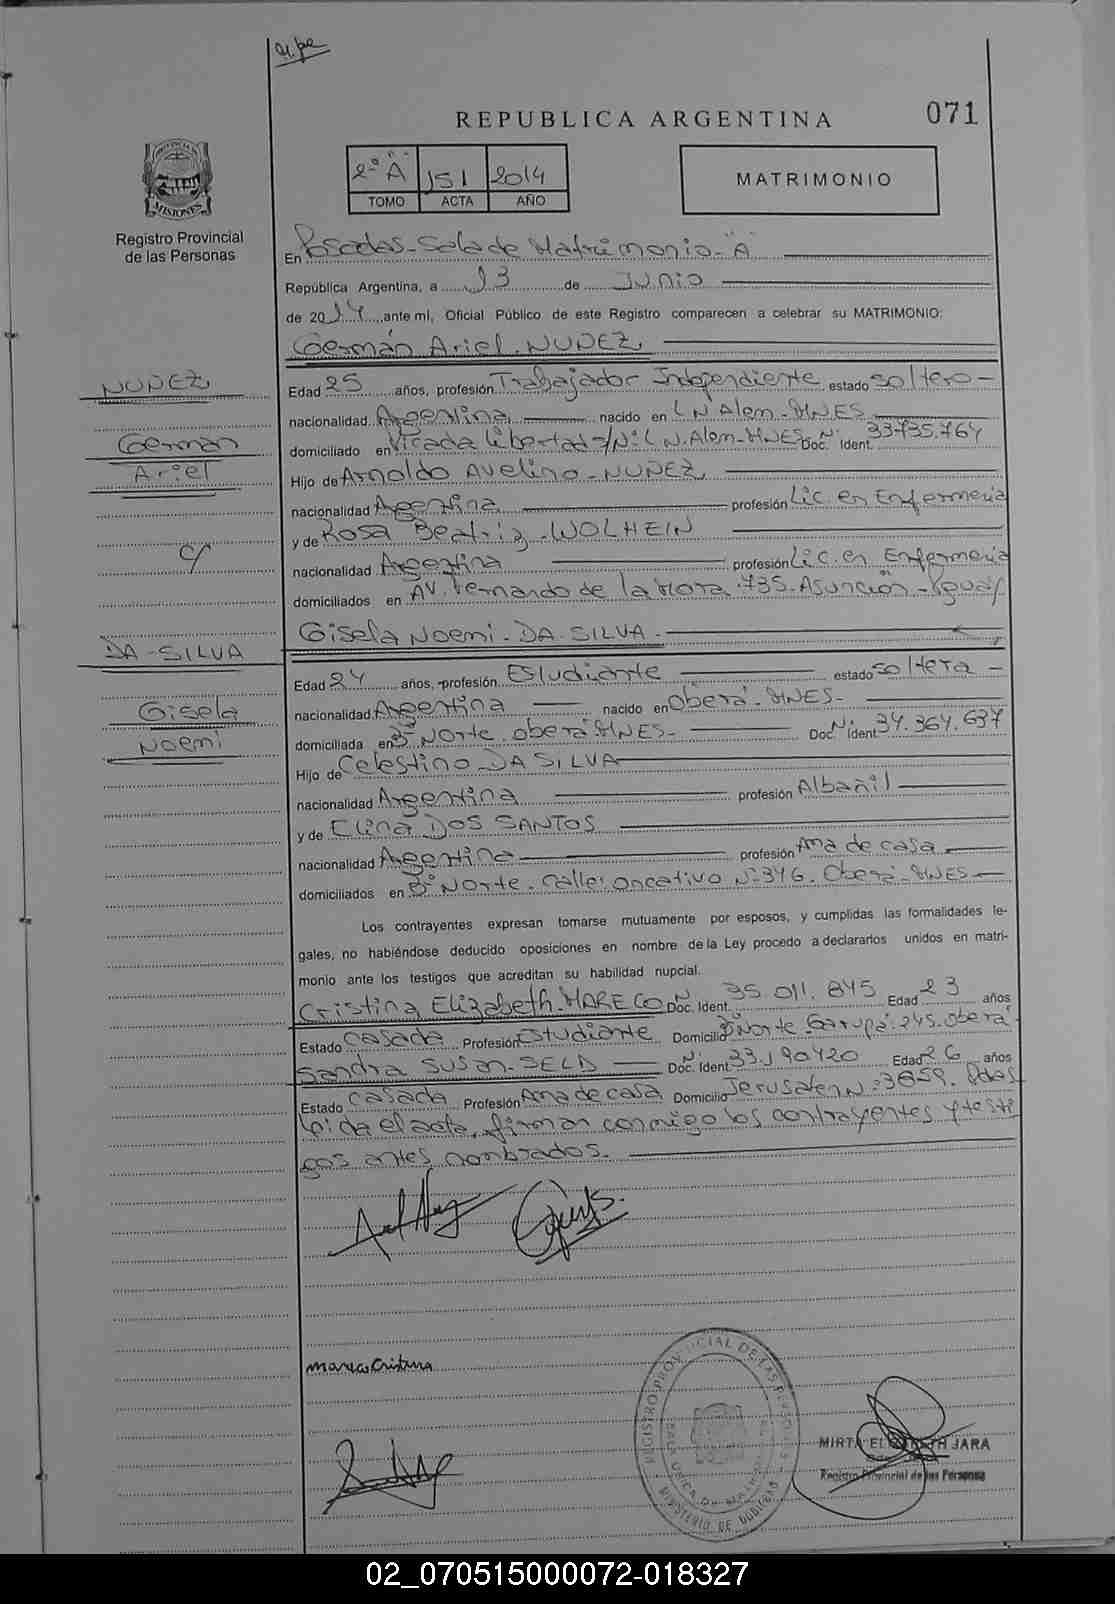 071
REPUBLICA ARGENTINA
2º "A" 151 2014
TOMO ACTA AÑO
MATRIMONIO
PROVINCIA DE
MISIONES
Registro Provincial
de las Personas
En Posadas - Sala de Matrimonio - "A"
República Argentina, a 13 de Junio
de 2014, ante mí, Oficial Público de este Registro comparecen a celebrar su MATRIMONIO:
Germán Ariel. NUÑEZ
NUÑEZ
Germán
Ariel
c/
DA - SILVA
Gisela
Noemi
Edad 25 años, profesión Trabajador Independiente estado soltero -
nacionalidad Argentina nacido en L N Alem - MNES
domiciliado en Picada Libertad s/Nº L N. Alem - MNES Doc. Nº Ident. 33.735.764
Hijo de Arnoldo Avelino - NUÑEZ
nacionalidad Argentina profesión Lic. en Enfermeria
y de Rosa Beatriz - WOLHEIN
nacionalidad Argentina profesión Lic. en Enfermeria
domiciliados en AV. Fernando de la Mora 735. Asunción -
Gisela Noemi - DA - SILVA -
Edad 24 años, profesión Estudiante estado soltera -
nacionalidad Argentina nacido en Oberá - MNES -
domiciliada en Bº Norte. Oberá MNES - Doc. Nº Ident 34.364.637
Hijo de Celestino - DA SILVA
nacionalidad Argentina profesión Albañil
y de Elina DOS SANTOS
nacionalidad Argentina profesión Ama de casa
domiciliados en Bº Norte. Calle: Oncativo Nº 346. Oberá - MNES -
Los contrayentes expresan tomarse mutuamente por esposos, y cumplidas las formalidades le-
gales, no habiéndose deducido oposiciones en nombre de la Ley procedo a declararlos unidos en matri-
monio ante los testigos que acreditan su habilidad nupcial.
Cristina Elizabeth. MARECO Doc. Nº Ident. 35.011.845 Edad 23 años
Estado Casada Profesión Estudiante Domicilio Bº Norte. Garupá: 245. Oberá
Sandra Susan - SELD Doc. Nº Ident. 33.190420 Edad 26 años
Estado Casada Profesión Ama de casa Domicilio Jerusalen Nº: 3859. Pdas
Leida el acta, firman conmigo los contrayentes y testi
gos antes nombrados.
Mareco Cristina
REGISTRO PROVINCIAL DE LAS PERSONAS
MINISTERIO DE GOBIERNO
MIRTA ELIZABETH JARA
Registro Provincial de las Personas
02_070515000072-018327